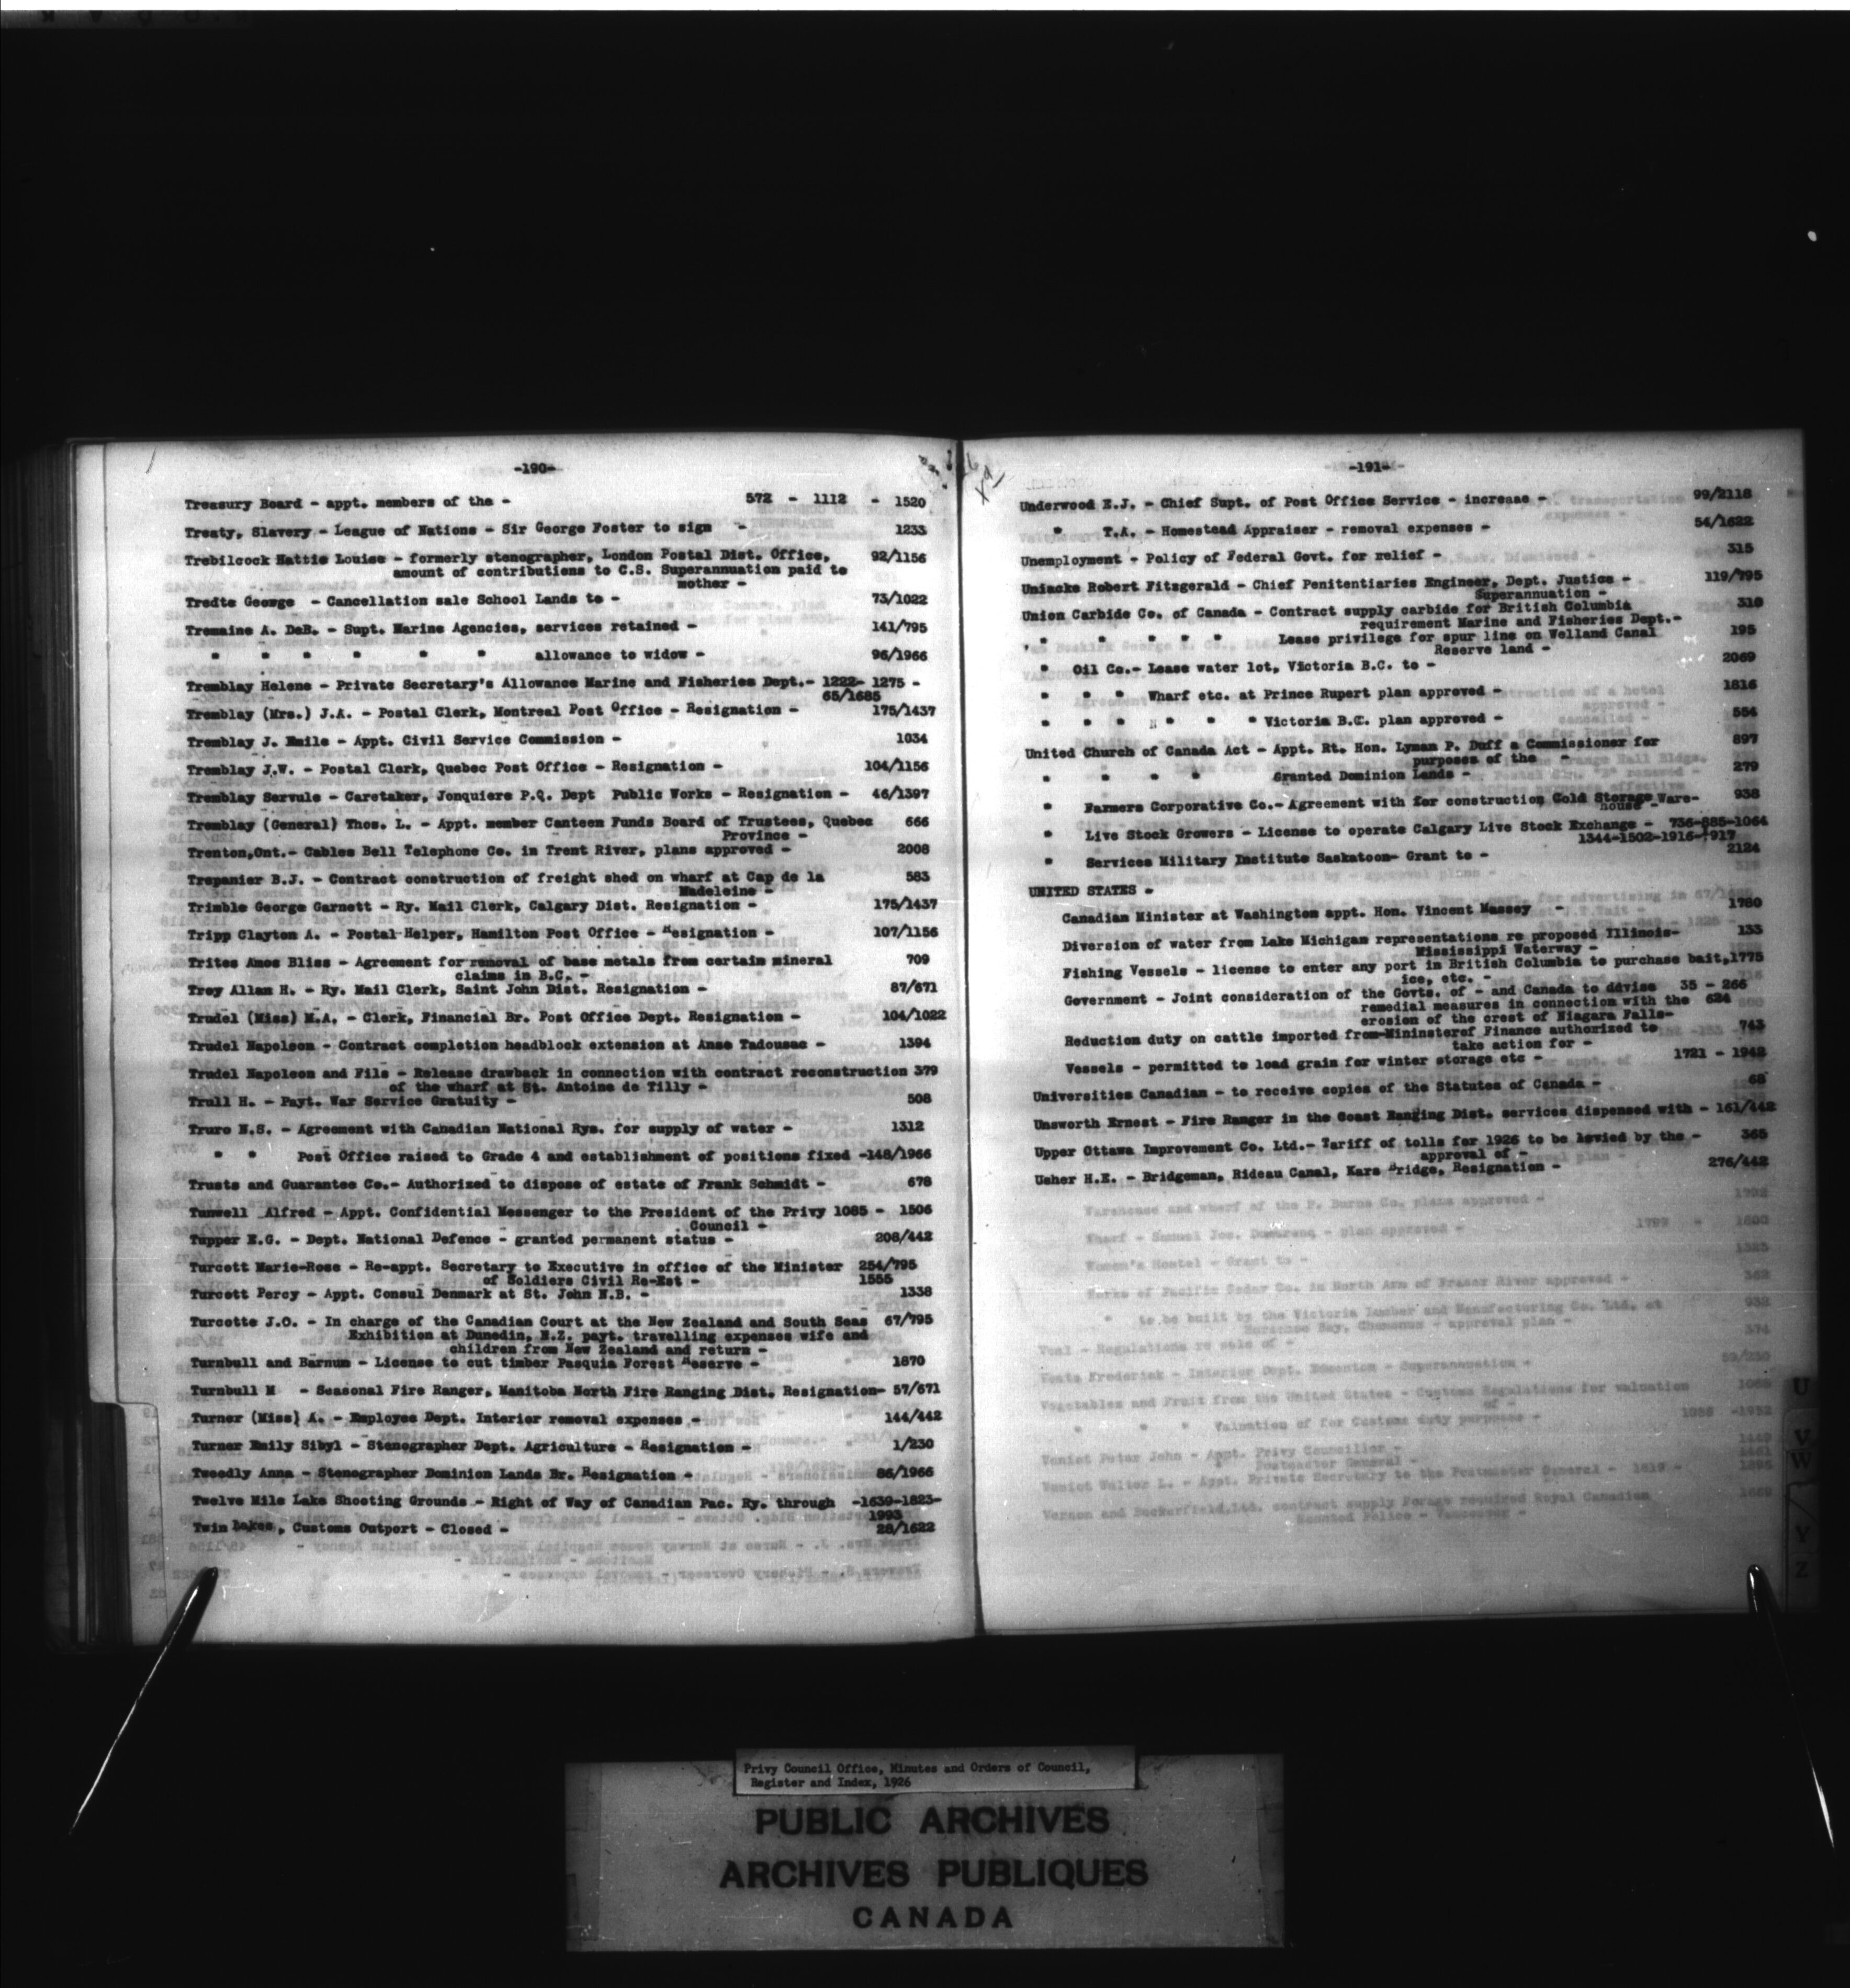 -190-
Treasury Board - appt. members of the - 572 - 1112 - 1520
Treaty, Slavery - League of Nations - Sir George Foster to sign - 1233
Trebilcock Hattie Louise - formerly stenographer, London Postal Dist. Office, 92/1156
amount of contributions to C.S. Superannuation paid to
mother -
Tredte George - Cancellation sale School Lands to - 73/1022
Tremaine A. DeB. - Supt. Marine Agencies, services retained - 141/795
" " " " " " allowance to widow - 96/1966
Tremblay Helene - Private Secretary's Allowance Marine and Fisheries Dept.- 1222- 1275 -
65/1685
Tremblay (Mrs.) J.A. - Postal Clerk, Montreal Post Office - Resignation - 175/1437
Tremblay J. Emile - Appt. Civil Service Commission - 1034
Tremblay J.W. - Postal Clerk, Quebec Post Office - Resignation - 104/1156
Tremblay Servule - Caretaker, Jonquiere P.Q. Dept Public Works - Resignation - 46/1397
Tremblay (General) Thos. L. - Appt. member Canteen Funds Board of Trustees, Quebec 666
Province -
Trenton,Ont.- Cables Bell Telephone Co. in Trent River, plans approved - 2008
Trepanier B.J. - Contract construction of freight shed on wharf at Cap de la 583
Madeleine -
Trimble George Garnett - Ry. Mail Clerk, Calgary Dist. Resignation - 175/1437
Tripp Clayton A. - Postal Helper, Hamilton Post Office - Resignation - 107/1156
Trites Amos Bliss - Agreement for removal of base metals from certain mineral 709
claims in B.C. -
Troy Allan H. - Ry. Mail Clerk, Saint John Dist. Resignation - 87/671
Trudel (Miss) M.A. - Clerk, Financial Br. Post Office Dept. Resignation - 104/1022
Trudel Napoleon - Contract completion headblock extension at Anse Tadousac - 1394
Trudel Napoleon and Fils - Release drawback in connection with contract reconstruction 379
of the wharf at St. Antoine de Tilly -
Trull H. - Payt. War Service Gratuity - 508
Truro N.S. - Agreement with Canadian National Rys. for supply of water - 1312
" " Post Office raised to Grade 4 and establishment of positions fixed -148/1966
Trusts and Guarantee Co.- Authorized to dispose of estate of Frank Schmidt - 678
Tunwell Alfred - Appt. Confidential Messenger to the President of the Privy 1085 - 1506
Council -
Tupper N.G. - Dept. National Defence - granted permanent status - 208/442
Turcott Marie-Rose - Re-appt. Secretary to Executive in office of the Minister 254/795
of Soldiers Civil Re-Est - 1555
Turcott Percy - Appt. Consul Denmark at St. John N.B. - 1338
Turcotte J.O. - In charge of the Canadian Court at the New Zealand and South Seas 67/795
Exhibition at Dunedin, N.Z. payt. travelling expenses wife and
children from New Zealand and return -
Turnbull and Barnum - License to cut timber Pasquia Forest Reserve - 1870
Turnbull M - Seasonal Fire Ranger, Manitoba North Fire Ranging Dist. Resignation- 57/671
Turner (Miss) A. - Employee Dept. Interior removal expenses - 144/442
Turner Emily Sibyl - Stenographer Dept. Agriculture - Resignation - 1/230
Tweedly Anna - Stenographer Dominion Lands Br. Resignation - 86/1966
Twelve Mile Lake Shooting Grounds - Right of Way of Canadian Pac. Ry. through -1639-1823-
1993
Twin Lakes, Customs Outport - Closed - 28/1622
-191-
Underwood E.J. - Chief Supt. of Post Office Service - increase - 99/2118
" T.A. - Homestead Appraiser - removal expenses - 54/1622
Unemployment - Policy of Federal Govt. for relief - 315
Uniacke Robert Fitzgerald - Chief Penitentiaries Engineer, Dept. Justice - 119/795
Superannuation -
Union Carbide Co. of Canada - Contract supply carbide for British Columbia 310
requirement Marine and Fisheries Dept.-
" " " " " Lease privilege for spur line on Welland Canal 195
Reserve land -
" Oil Co.- Lease water lot, Victoria B.C. to - 2069
" " " Wharf etc. at Prince Rupert plan approved - 1816
" " " " " " Victoria B.C. plan approved - 554
United Church of Canada Act - Appt. Rt. Hon. Lyman P. Duff a Commissioner for 897
purposes of the -
" " " " Granted Dominion Lands - 279
" Farmers Corporative Co.- Agreement with for construction Cold Storage Ware- 938
house -
" Live Stock Growers - License to operate Calgary Live Stock Exchange - 736-885-1064
1344-1502-1916-1917
" Services Military Institute Saskatoon- Grant to - 2124
UNITED STATES -
Canadian Minister at Washington appt. Hon. Vincent Massey - 1780
Diversion of water from Lake Michigan representations re proposed Illinois- 133
Mississippi Waterway -
Fishing Vessels - license to enter any port in British Columbia to purchase bait,1775
ice, etc. -
Government - Joint consideration of the Govts. of - and Canada to devise 35 - 266
remedial measures in connection with the 624
erosion of the crest of Niagara Falls-
Reduction duty on cattle imported from-Mininsterof Finance authorized to 743
take action for -
Vessels - permitted to load grain for winter storage etc - 1721 - 1942
Universities Canadian - to receive copies of the Statutes of Canada - 68
Unsworth Ernest - Fire Ranger in the Coast Ranging Dist. services dispensed with - 161/442
Upper Ottawa Improvement Co. Ltd.- Tariff of tolls for 1926 to be levied by the - 365
approval of -
Usher H.E. - Bridgeman, Rideau Canal, Kars Bridge, Resignation - 276/442
U
V
W
Y
Z
Privy Council Office, Minutes and Orders of Council,
Register and Index, 1926
PUBLIC ARCHIVES
ARCHIVES PUBLIQUES
CANADA